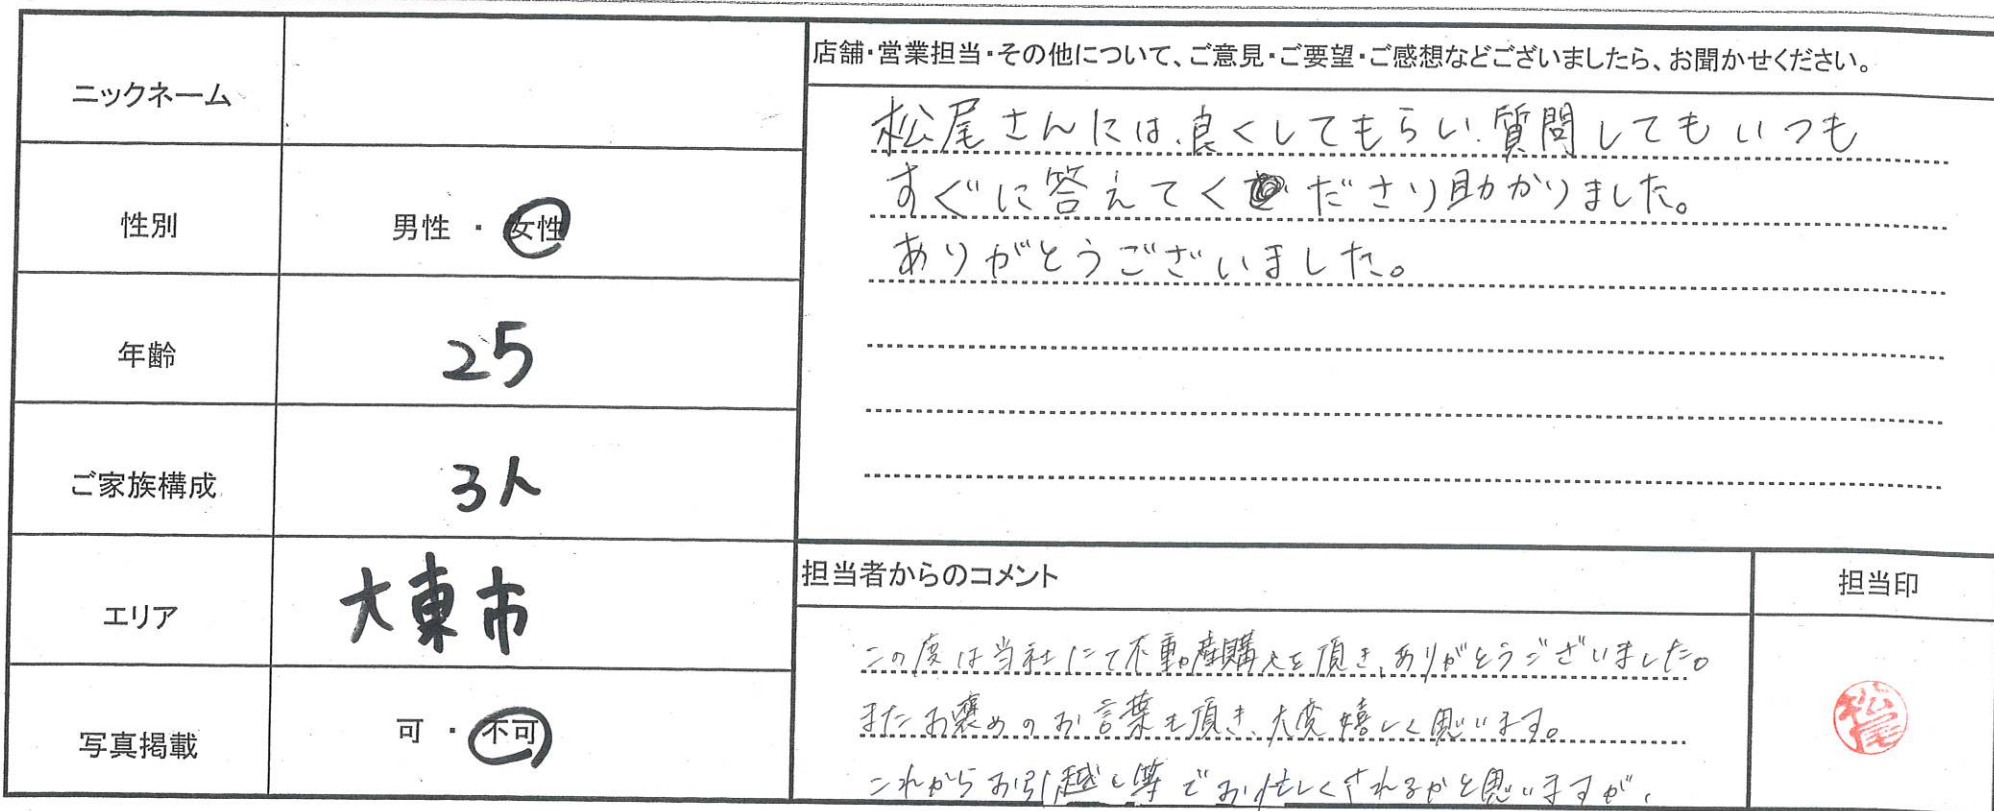 ニックネーム
性別
男性 ・ 女性
年齢
25
ご家族構成
3人
エリア
大東市
写真掲載
可 ・ 不可
店舗・営業担当・その他について、ご意見・ご要望・ご感想などございましたら、お聞かせください。
松尾さんには、良くしてもらい、質問してもいつも
すぐに答えてくださり助かりました。
ありがとうございました。
担当者からのコメント
この度は当社にて不動産購入を頂き、ありがとうございました。
またお褒めのお言葉も頂き、大変嬉しく思います。
これからお引越し等でお忙しくされるかと思いますが、
担当印
松尾